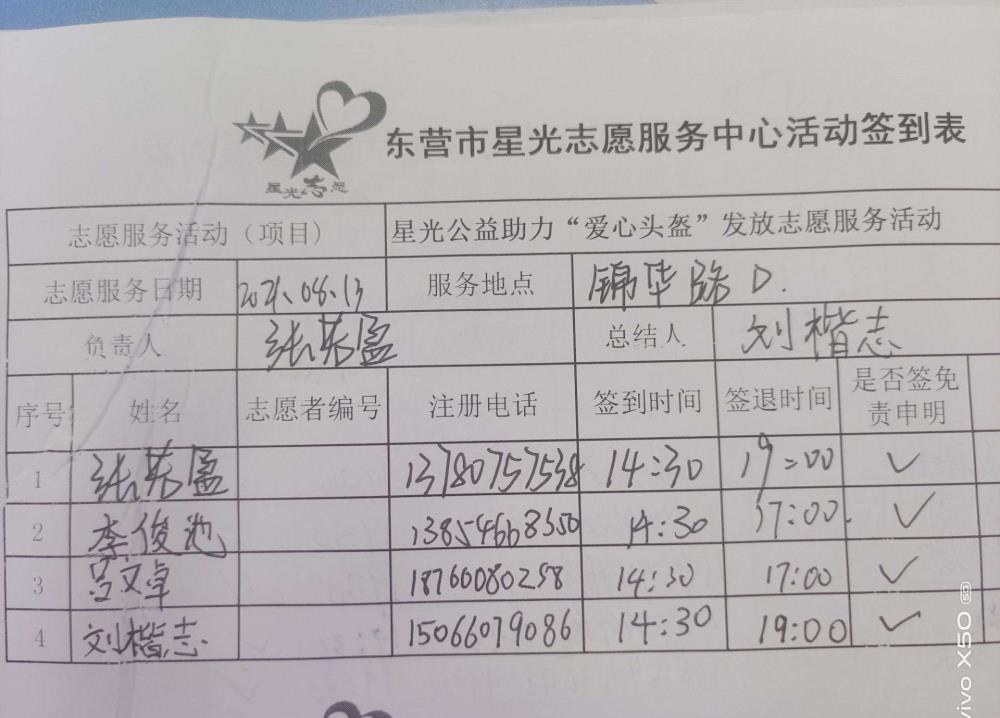 东营市星光志愿服务中心活动签到表
星光志愿
志愿服务活动（项目） 星光公益助力“爱心头盔”发放志愿服务活动
志愿服务日期 2021.08.13 服务地点 锦华路D.
负责人 张荣盈 总结人 刘楷志
序号 姓名 志愿者编号 注册电话 签到时间 签退时间 是否签免责申明
1 张荣盈 13780757538 14:30 19:00 ✓
2 李俊池 13854668550 14:30 17:00. ✓
3 吕文卓 18766080258 14:30 17:00 ✓
4 刘楷志. 15066079086 14:30 19:00 ✓
vivo X50 5G